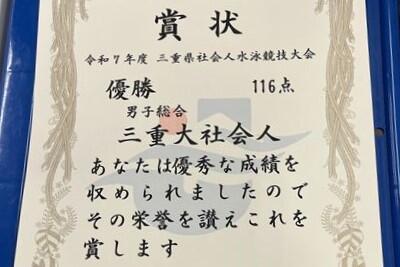 賞状
令和7年度 三重県社会人水泳競技大会
優勝 116点
男子総合
三重大社会人
あなたは優秀な成績を
収められましたので
その栄誉を讃えこれを
賞します